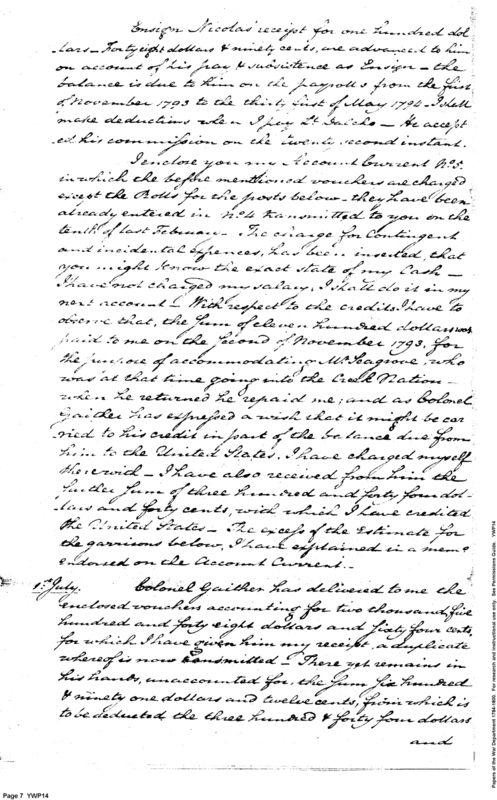 Ensign Nicolas' receipt for one hundred dol
lars – Forty eight dollars & ninety cents, are advanced to him
on account of his pay & subsistence as Ensign – the
balance is due to him on the payrolls from the first
of November 1793 to the thirty first of May 1794. I shall
make deductions when I pay Lt Dalcho – He accept
ed his commission on the twenty second instant.
I enclose you my Account Current No. 5.
in which the before mentioned vouchers are charged
except the Rolls for the posts below – they have been
already entered in No. 4 transmitted to you on the
tenth of last February – The charge for Contingent
and incidental expences, has been inserted, that
you might know the exact state of my Cash –
I have not charged my salary, I shall do it in my
next account – With respect to the credits I have to
observe that, the sum of eleven hundred dollars was
paid to me on the second of November 1793, for
the purpose of accommodating Mr. Seagrove, who
was at that time going into the Creek Nation –
when he returned he repaid me; and as Colonel
Gaither has expressed a wish that it might be car
ried to his credit in part of the balance due from
him to the United States, I have charged myself
therewith – I have also received from him the
further sum of three hundred and forty four dol
lars and forty cents, with which I have credited
the United States – The excess of the Estimate for
the garrisons below, I have explained in a memo
endorsed on the Account Current. –
1st July. Colonel Gaither has delivered to me the
enclosed vouchers accounting for two thousand five
hundred and forty eight dollars and sixty four cents,
for which I have given him my receipt, a duplicate
whereof is now transmitted – There yet remains in
his hands, unaccounted for, the sum six hundred
& ninety one dollars and twelve cents, from which is
to be deducted the three hundred & forty four dollars
and
Page 7 YWP14
Papers of the War Department 1784-1800. For research and instructional use only. See Permissions Guide. YWP14